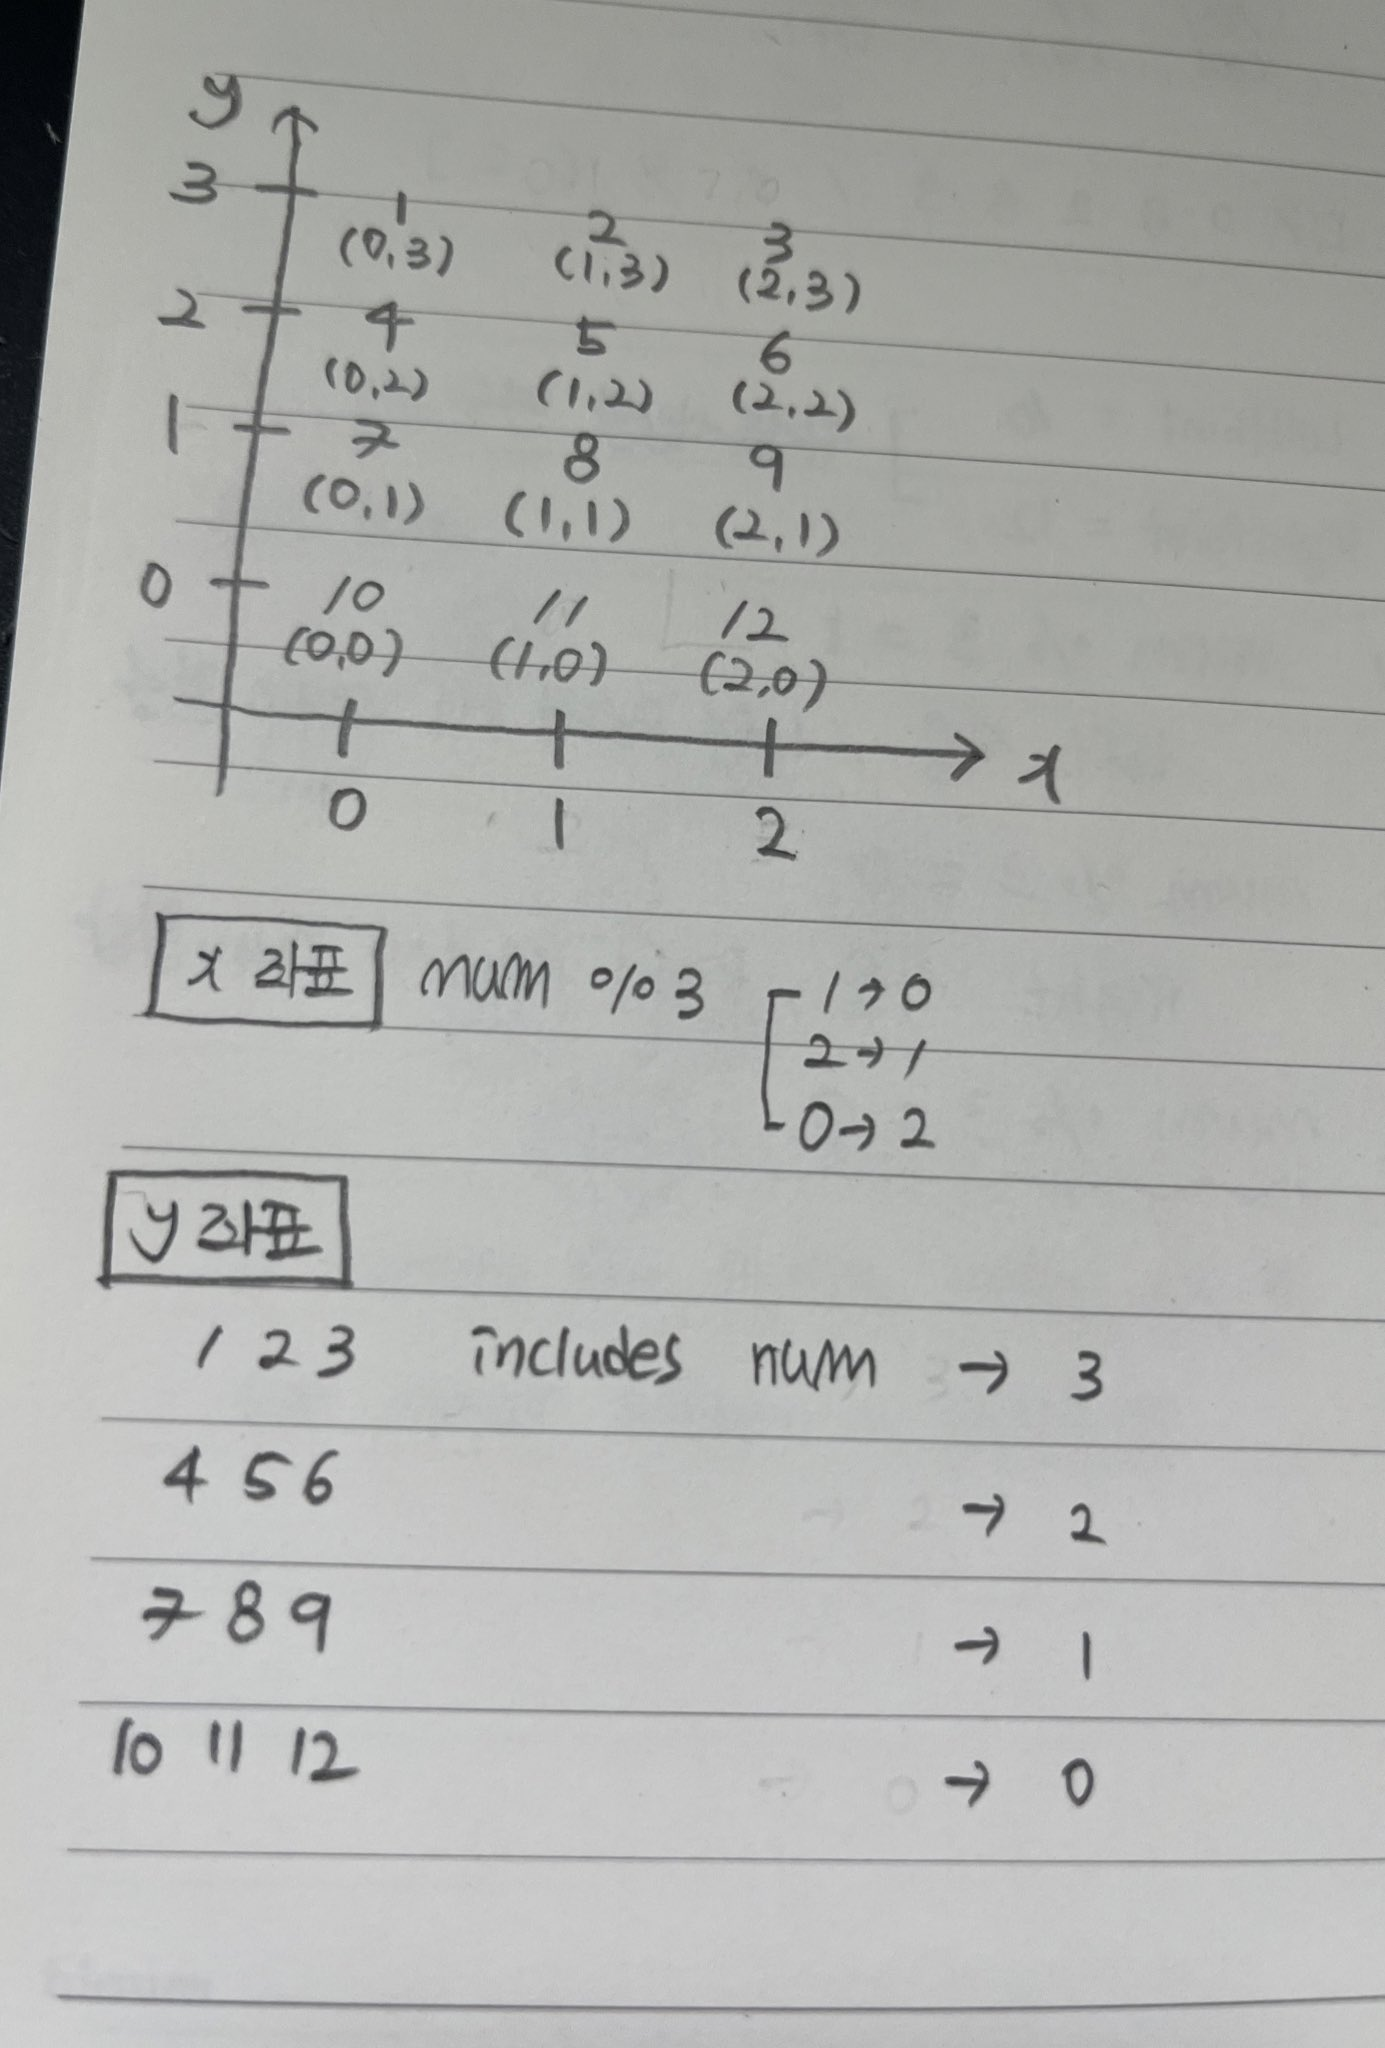 y
3 1 2 3
(0,3) (1,3) (2,3)
2 4 5 6
(0,2) (1,2) (2,2)
1 7 8 9
(0,1) (1,1) (2,1)
0 10 11 12
(0,0) (1,0) (2,0)
x
0 1 2
x 좌표 num % 3 1 → 0
2 → 1
0 → 2
y 좌표
1 2 3 includes num → 3
4 5 6 → 2
7 8 9 → 1
10 11 12 → 0